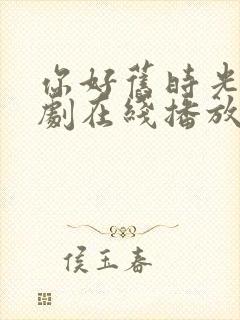 你好舊時光
劇在綫播放
侯玉春